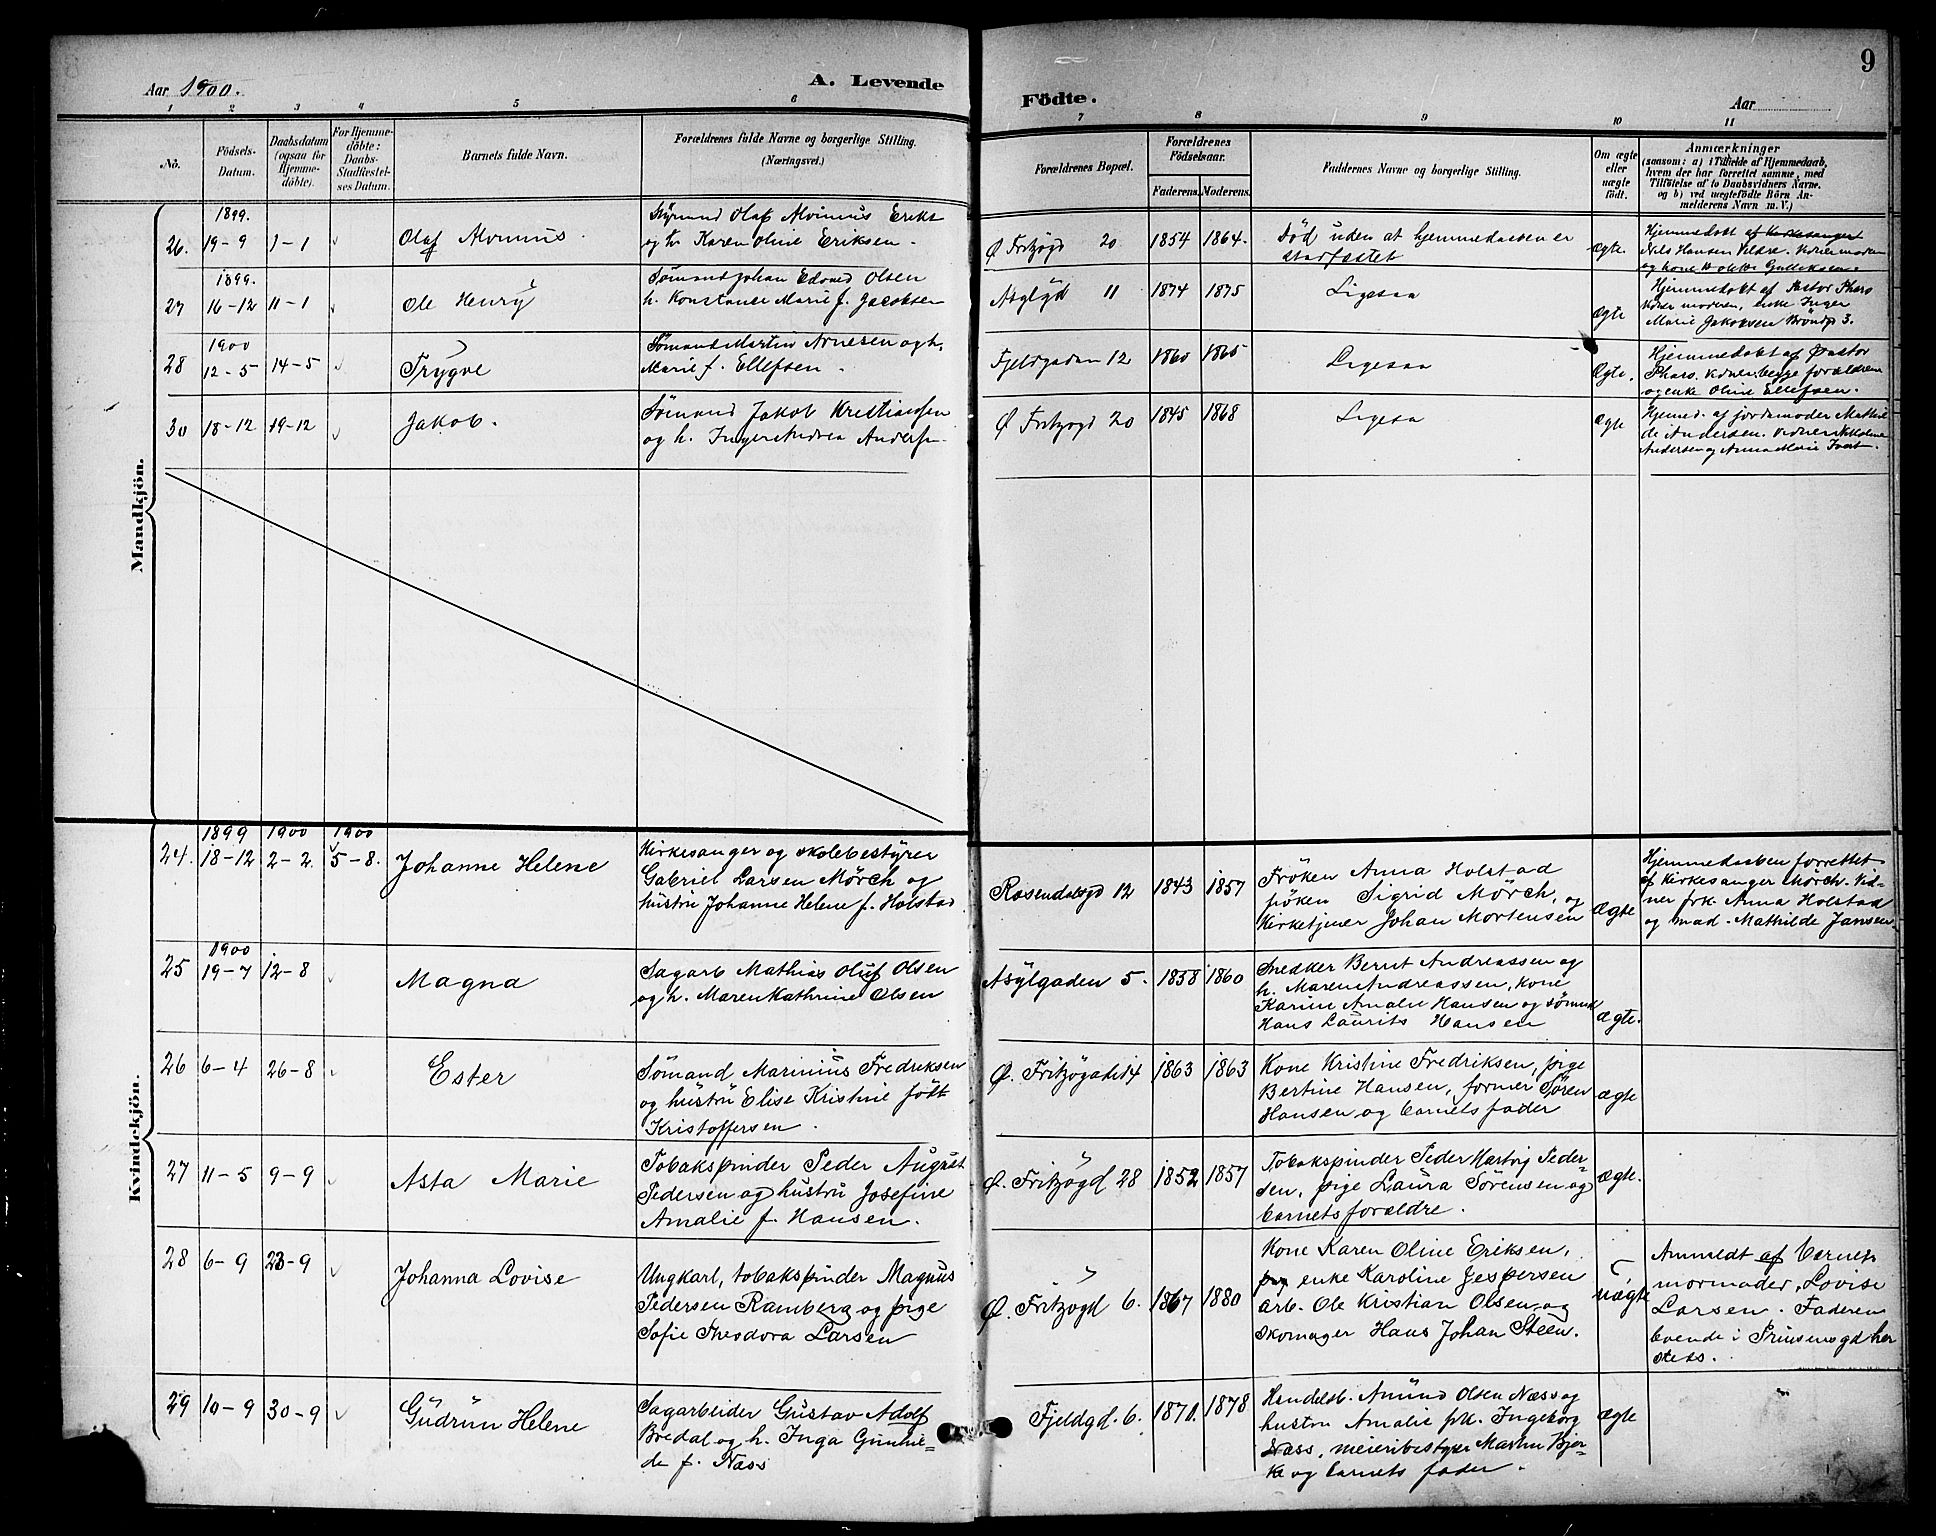 9
Aar 1900.
A. Levende
Födte.
Aar
1 2 3 4 5 6 7 8 9 10 11
No.
Födsels-
Datum.
Daabsdatum
(ogsaa for
Hjemme-
döbte).
For Hjemme-
döbte:
Daabs-
Stadfæstel-
ses Datum.
Barnets fulde Navn.
Forældrenes fulde Navne og borgerlige Stilling.
(Næringsvei.)
Forældrenes Bopæl.
Forældrenes
Födselsaar.
Faderens. Moderens.
Faddernes Navne og borgerlige Stilling.
Om ægte
eller
uægte
födt.
Anmærkninger
(saasom: a) i Tilfælde af Hjemmedaab,
hvem der har forrettet samme, med
Tilföielse af to Daabsvidners Navne,
og b) ved uægtefödte Börn An-
melderens Navn m. V.)
Mandkjön.
26.
1899.
19-9
1-1
Olaf Alvinius
Styrmand Olaf Alvinius Eriks
og h. Karen Oline Eriksen.
Ø Fritzögd 20
1854
1864.
Död uden at hjemmedaaben er
stadfæstet
Ægte.
Hjemmedöbt af Kirkesanger
Nils Hansen Vildre. Vidner moderen
og kone Gulliksen.
27
1899.
16-12
11-1
Ole Henry
Sömand Johan Edvard Olsen
h. Konstance Marie f. Jacobsen
Asylgd 11
1874
1875
Ligesaa
Ægte
Hjemmedöbt af Pastor Thars
Vidner moderen, enke Inger
Marie Jakobsen Bröndg 3.
28
1900
12-5
14-5
Trygve
Sömand Martin Arnesen og h.
Marie f. Ellefsen.
Fjeldgaden 12
1860
1865
Ligesaa
Ægte.
Hjemmedöbt af Pastor
Thars. Vidner begge forældrene
og enke Oline Ellefsen.
30
18-12
19-12
Jakob.
Sömand Jakob Kristiansen
og h. Inger Andrea Andersen
Ø Fritzogd 20
1845
1868
Ligesaa
Ægte
Hjemed. af jordemoder Mathil
de Andersen. Vidner
Andersen og Anna Marie
Kvindekjön.
24.
1899
18-12
1900
2-2.
1900
5-8.
Johanne Helene
Kirkesanger og skolebestyrer
Gabriel Larsen Mörch og
hustru Johanne Helene f. Holstad
Rosendalsgd 12
1843
1857
Fröken Anna Holstad
fröken Sigrid Mörch, og
Kirketjener Johan Mortensen
Ægte
Hjemmedaaben forrettet
af Kirkesanger Mörch. Vid-
ner frk. Anna Holstad
og mad. Mathilde Jansen.
25
1900
19-7
12-8
Magna
Sagarb Mathias Oluf Olsen
og h. Maren Kathrine Olsen
Asylgaden 5.
1858
1860
Snedker Bernt Andreassen og
h. Maren Andreassen, kone
Karine Amalie Hansen og sömnd
Hans Laurits Hansen
ægte.
26
6-4
26-8
Ester
Sömand Marinius Fredriksen
og hustru Elise Kristine födt
Kristoffersen.
Ø. Fritzögade 14
1863
1863
Kone Kristine Fredriksen, pige
Bertine Hansen, former Sören
Hansen og barnets fader
ægte
27
11-5
9-9
Asta Marie
Tobakspinder Peder August
Pedersen og hustru Josefine
Amalie f. Hansen.
Ø. Fritzögd 28
1852
1857
Tobakspinder Peder Hartvig Peder-
sen, pige Laura Sörensen og
barnets forældre.
ægte.
28
6-9
23-9
Johanna Lovise
Ungkarl, tobakspinder Magnus
Pedersen Ramberg og pige
Sofie Theodora Larsen
Ø. Fritzogd 6.
1867
1880
Kone Karen Oline Eriksen,
enke Karoline Jespersen
arb. Ole Kristian Olsen og
skomager Hans Johan Steen.
uægte
Anmeldt af barnets
mormoder, Lovise
Larsen. Faderen
boende i Prinsensgd her
steds.
29
10-9
30-9
Gudrun Helene
Sagarbeider Gustav Adolf
Bredal og h. Inga Gunhil-
de f. Næss
Fjeldgd. 6.
1870.
1878
Handelsb. Amund Olsen Næss og
hustru Amalie frk. Ingeborg
Næss, meieribestyrer Martin Bjer-
ke og barnets fader.
ægte
"